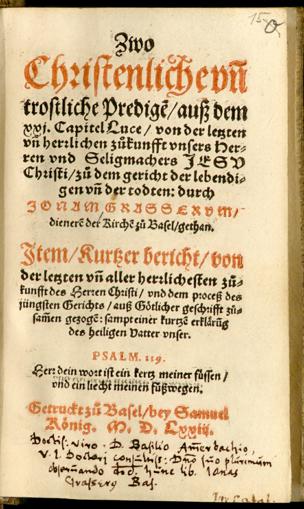 Zwo
Christenliche vñ
trostliche Predigẽ / auß dem
xxj. Capitel Luce / von der letzten
vñ herzlichen zůkunfft vnsers Her-
ren vnd Seligmachers JESV
Christi / zů dem gericht der lebendi-
gen vñ der todten: durch
JONAM GRASSERVM /
dienere der Kirchẽ zů Basel / gethan.
Item / Kurtzer bericht / von
der letzten vñ aller herzlichesten zů-
kunfft des Herren Christi / vnd dem proceß des
jüngsten Gerichts / auß Götlicher geschrifft zů-
samẽ gezogẽ: sampt einer kurtzẽ erklärũg
des heiligen Vatter vnser.
PSALM. 119.
Herr dein wort ist ein kertz meiner füssen /
vnd ein liecht meinen fůßwegen.
Getruckt zů Basel / bey Samuel
König. M. D. Lxxiij.
Doctiss. viro. D. Basilio Amerbachio,
V. I. Doctori Dño suo plurimum
observando d. d. hunc lib. Ionas
Grasserus Bas.